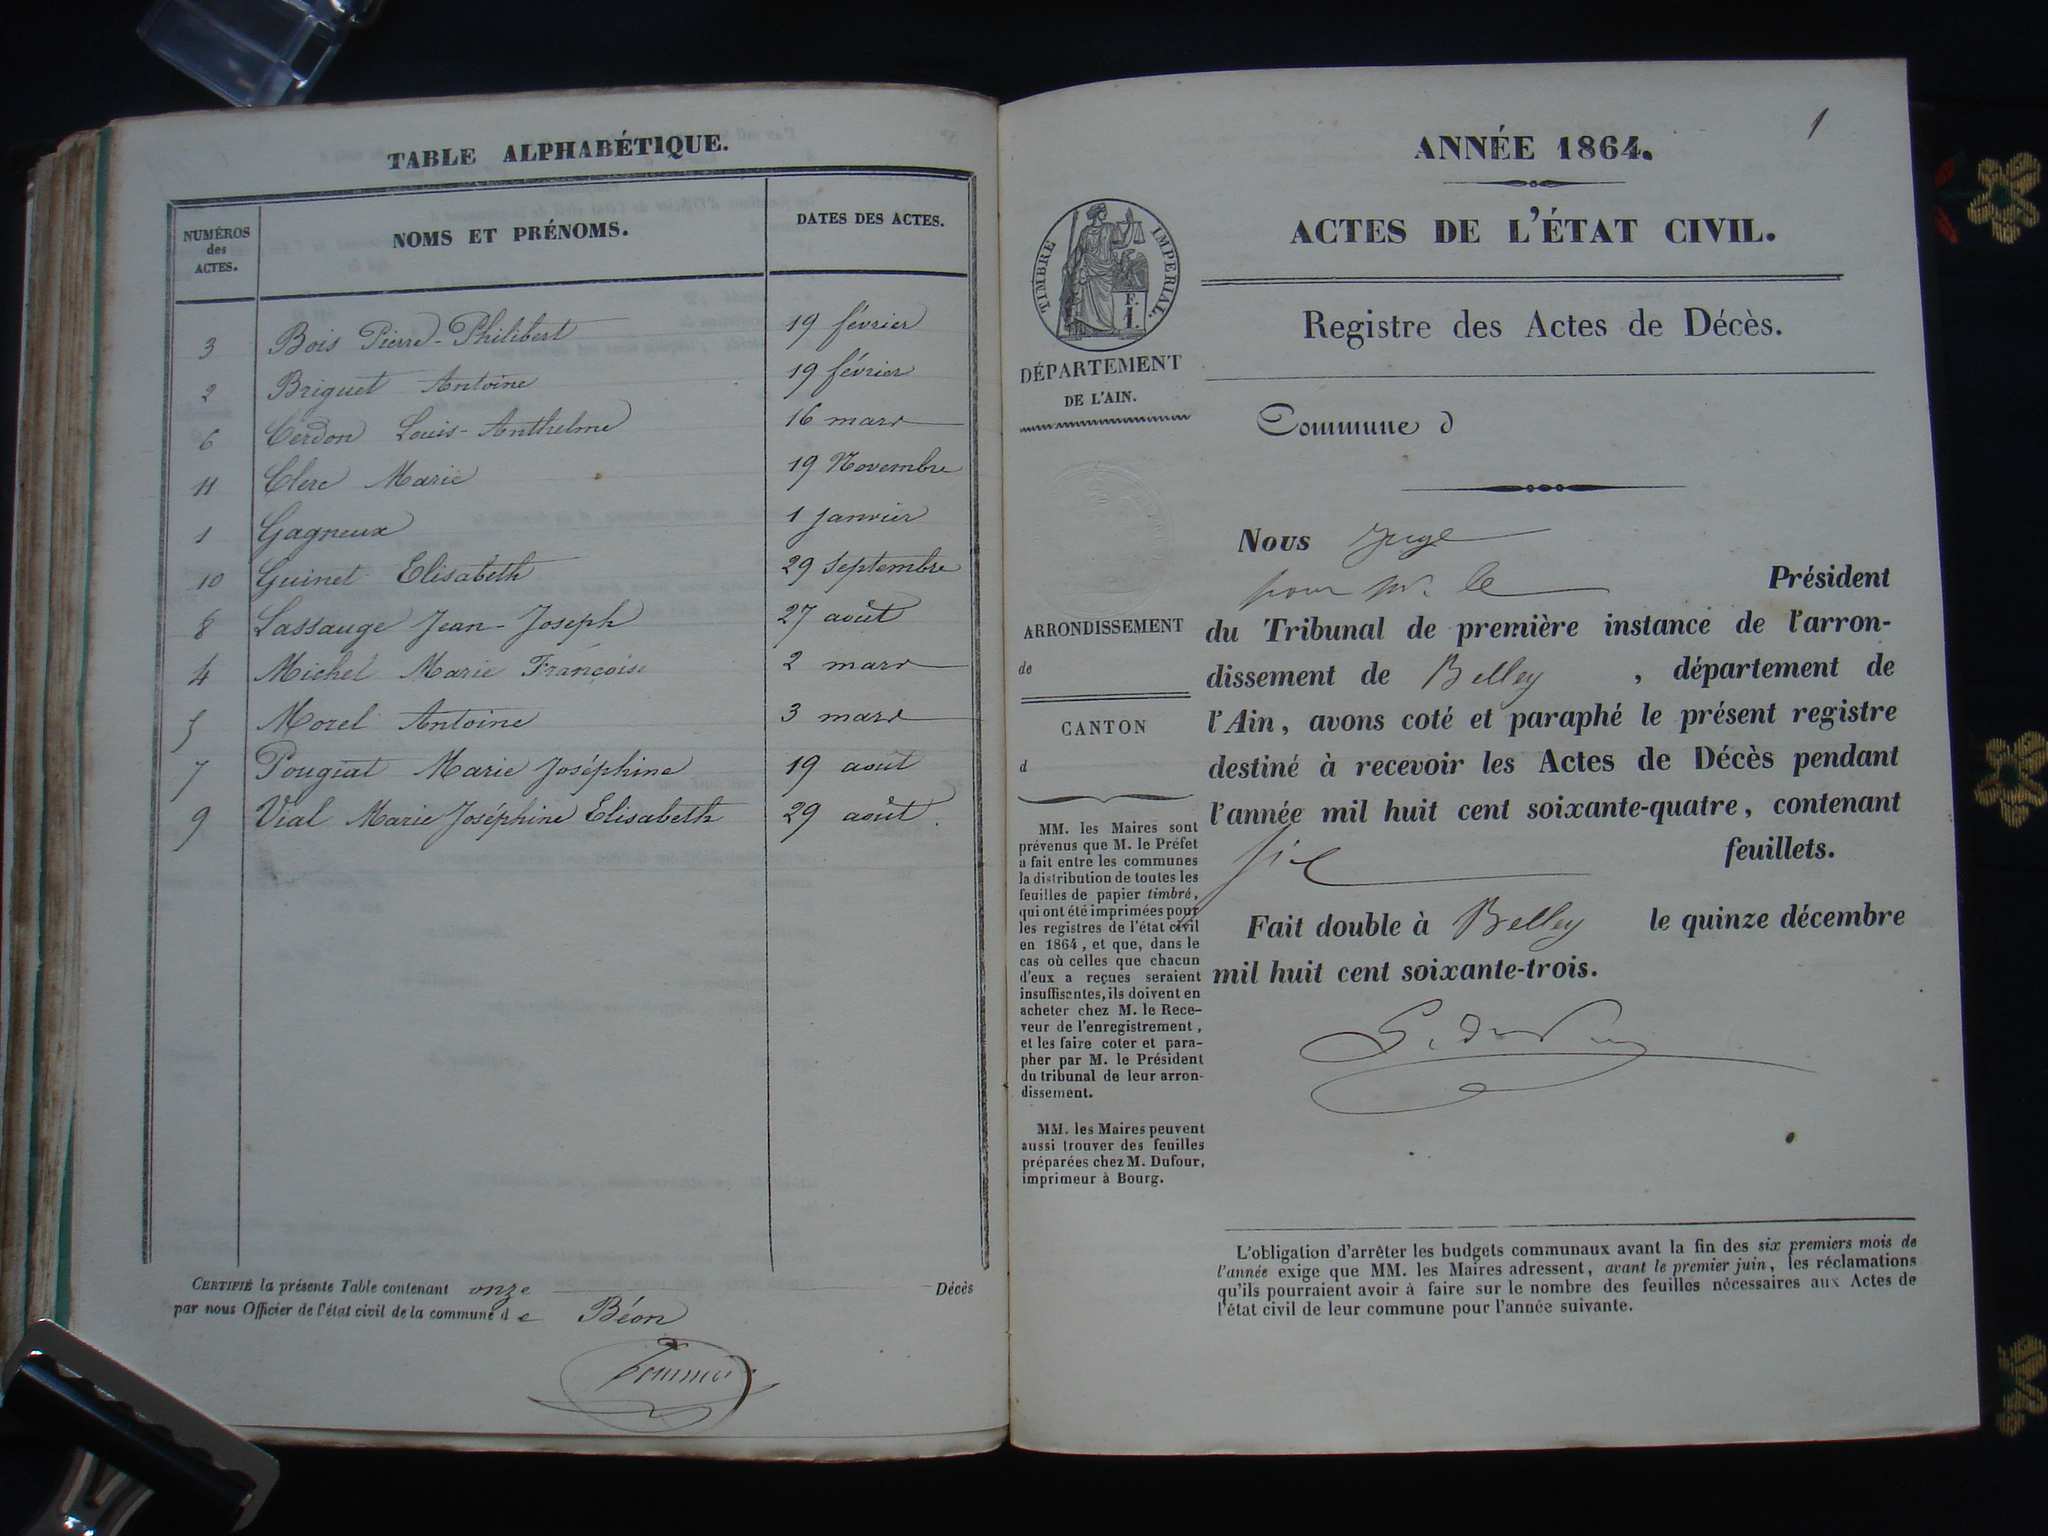 TABLE ALPHABÉTIQUE.
NUMÉROS
des
ACTES.
NOMS ET PRÉNOMS.
DATES DES ACTES.
3 Bois Pierre-Philibert 19 février
2 Briguet Antoine 19 février
6 Cerdon Louis-Anthelme 16 mars
11 Clerc Marie 19 Novembre
1 Gagneux 1 Janvier
10 Guinet Elisabeth 29 Septembre
8 Lassauge Jean-Joseph 27 août
4 Michel Marie Françoise 2 mars
5 Morel Antoine 3 mars
7 Pouguat Marie Joséphine 19 août
9 Vial Marie Joséphine Elisabeth 29 août.
CERTIFIÉ la présente Table contenant onze Décès
par nous Officier de l'état civil de la commune de Béon
1
ANNÉE 1864.
ACTES DE L'ÉTAT CIVIL.
Registre des Actes de Décès.
TIMBRE IMPERIAL.
F.
1.
DÉPARTEMENT
DE L'AIN.
ARRONDISSEMENT
de
CANTON
d
MM. les Maires sont
prévenus que M. le Préfet
a fait entre les communes
la distribution de toutes les
feuilles de papier timbré,
qui ont été imprimées pour
les registres de l'état civil
en 1864, et que, dans le
cas où celles que chacun
d'eux a reçues seraient
insuffisantes, ils doivent en
acheter chez M. le Rece-
veur de l'enregistrement,
et les faire coter et para-
pher par M. le Président
du tribunal de leur arron-
dissement.
MM. les Maires peuvent
aussi trouver des feuilles
préparées chez M. Dufour,
imprimeur à Bourg.
Commune d
Nous Juge
pour M. le Président
du Tribunal de première instance de l'arron-
dissement de Belley, département de
l'Ain, avons coté et paraphé le présent registre
destiné à recevoir les Actes de Décès pendant
l'année mil huit cent soixante-quatre, contenant
six feuillets.
Fait double à Belley le quinze décembre
mil huit cent soixante-trois.
L'obligation d'arrêter les budgets communaux avant la fin des six premiers mois de
l'année exige que MM. les Maires adressent, avant le premier juin, les réclamations
qu'ils pourraient avoir à faire sur le nombre des feuilles nécessaires aux Actes de
l'état civil de leur commune pour l'année suivante.